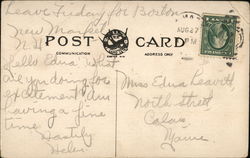 Leave Friday for Boston
New Market
N.H.
POST CARD
COMMUNICATION
ADDRESS ONLY
AUG 27
Hello Edna What
are you doing for
excitement? Am
having a fine
time.
Hastily
Helen
Miss Edna Leavitt
North Street
Calais
Maine